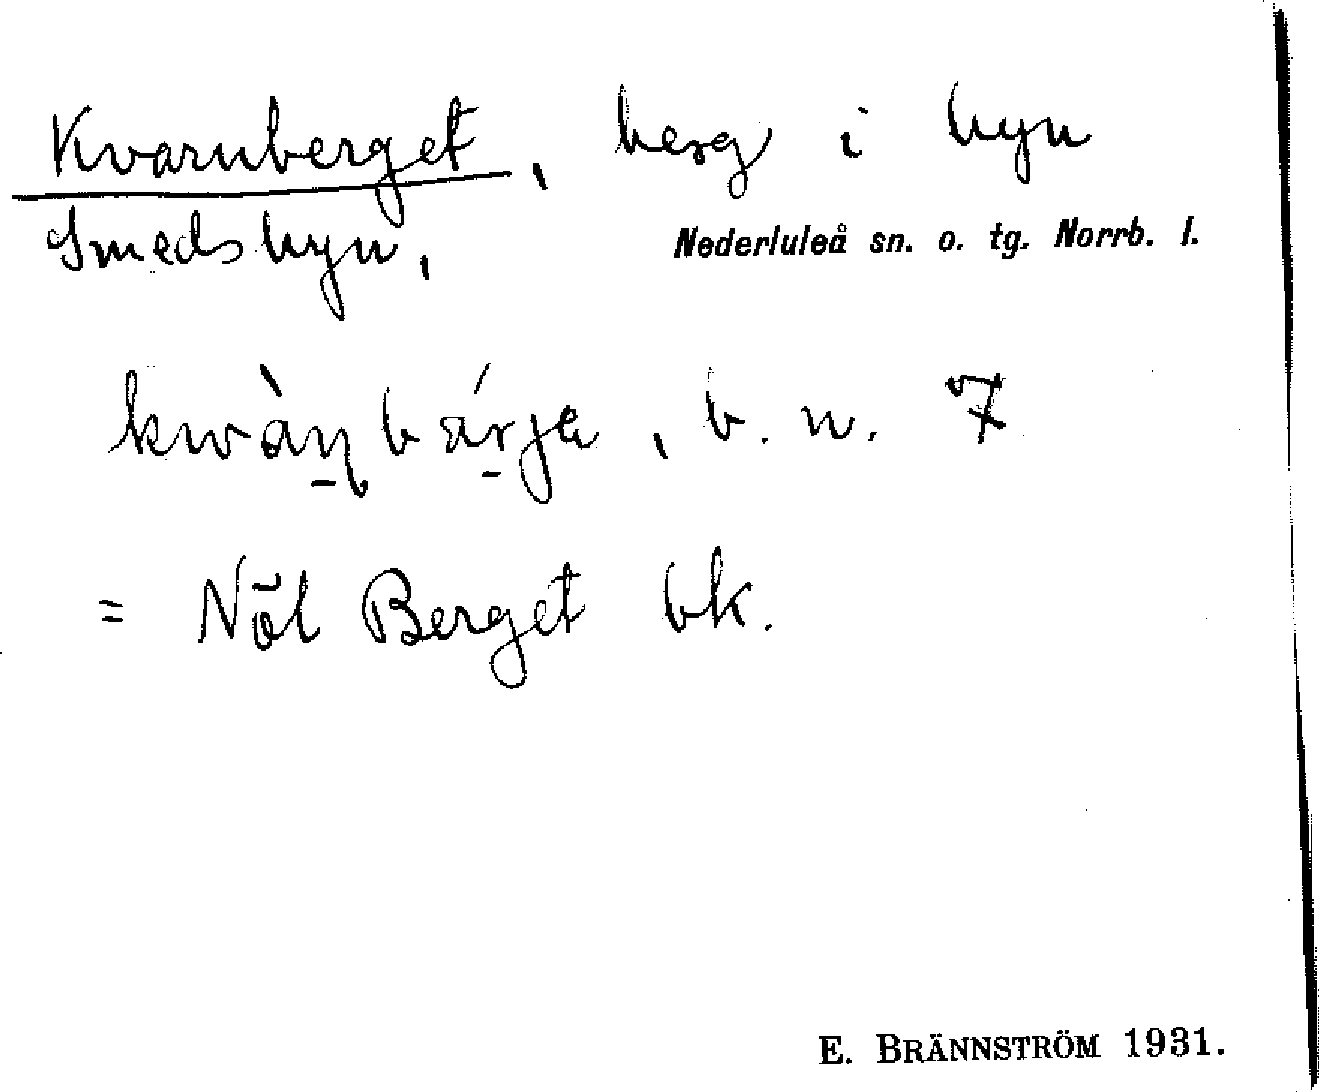 Kvarnberget, berg i byn
Smedsbyn, Nederluleå sn. o. tg. Norrb. l.
kwàn̠bár̠ja, b. n. 7
= Nōl Berget bk.
E. BRÄNNSTRÖM 1931.